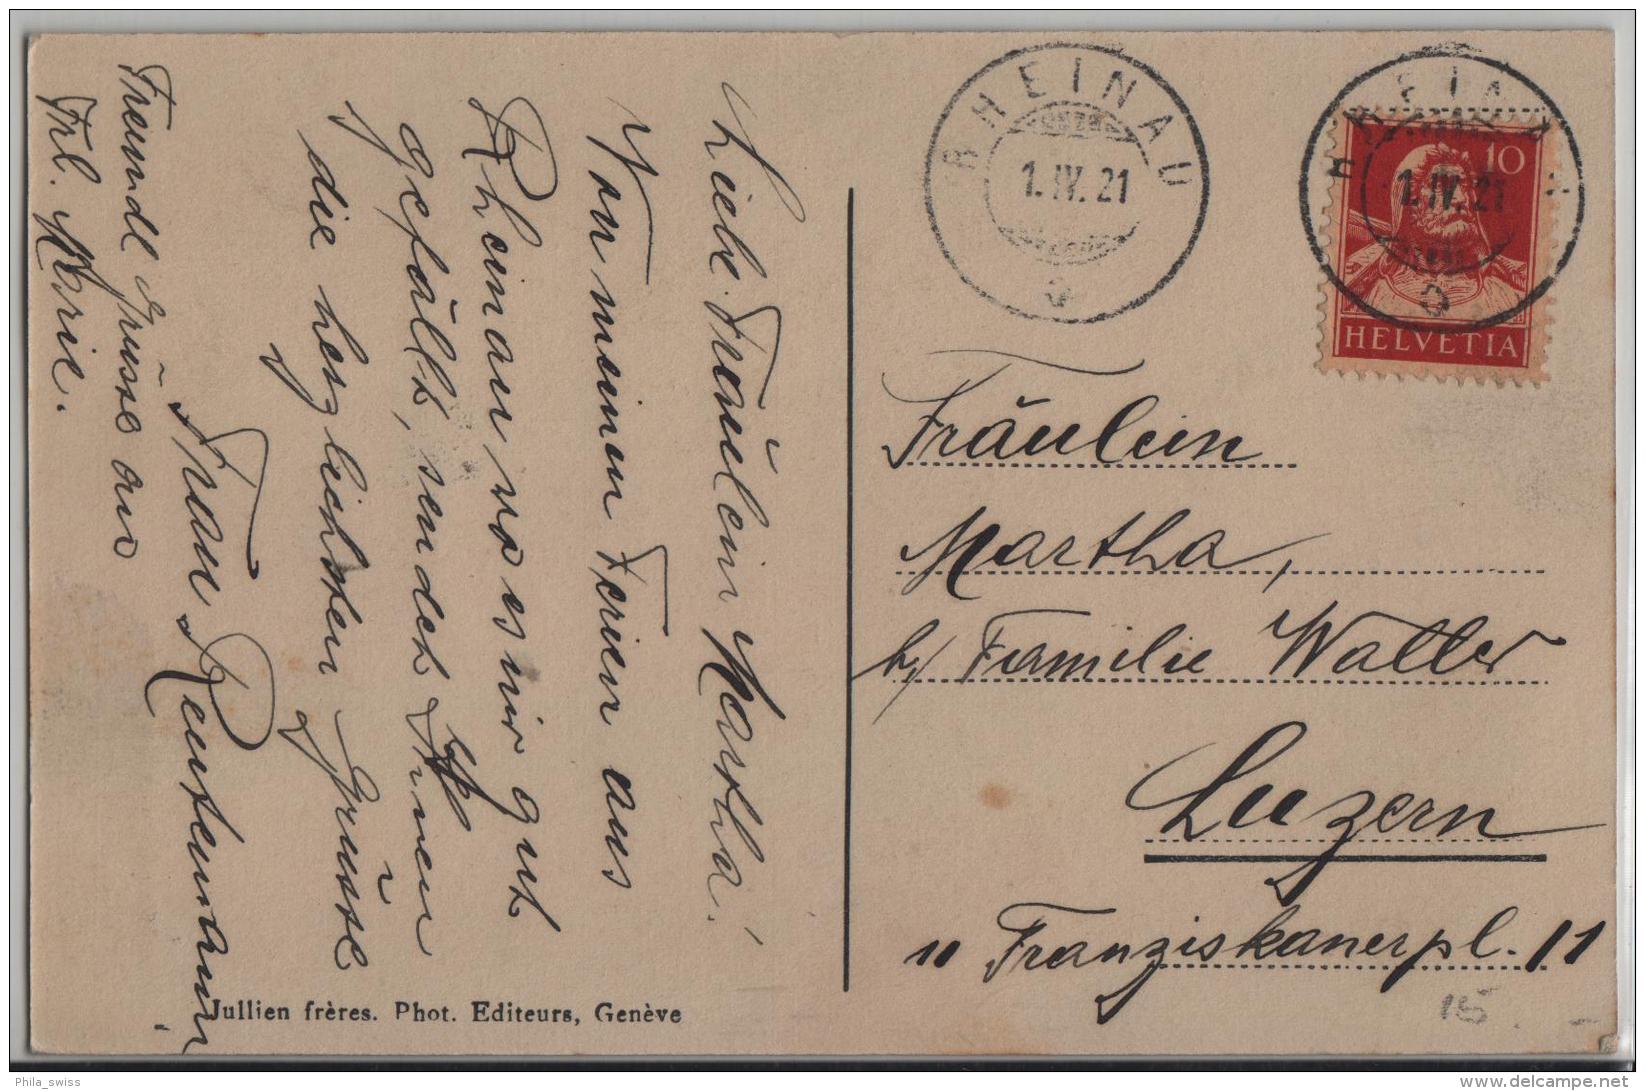 Liebe Fräulein Martha!
Von meinen Ferien aus
Rheinau wo es mir gut
gefällt, sendet Ihnen
die herzlichsten Grüsse
Frau Rentemann
Freundl. Grüsse an
Frl. Marie.
RHEINAU
1.IV.21
RHEINAU
1.IV.21
10
HELVETIA
Fräulein
Martha,
b/ Familie Walter
Luzern
11 Franziskanerpl. 11
15
Jullien frères. Phot. Editeurs, Genève
Phila_swiss
delcampe.net